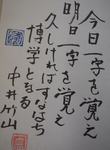 今日一字を覚え
明日一字を覚え
久しければすなはち
博学となる
中井竹山